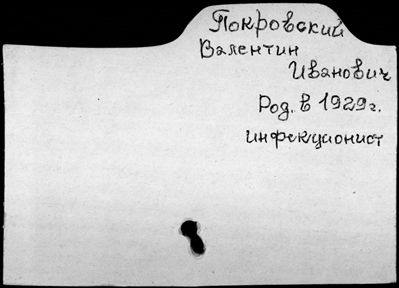 Покровский
Валентин
Иванович
Род. в 1929г.
инфекционист